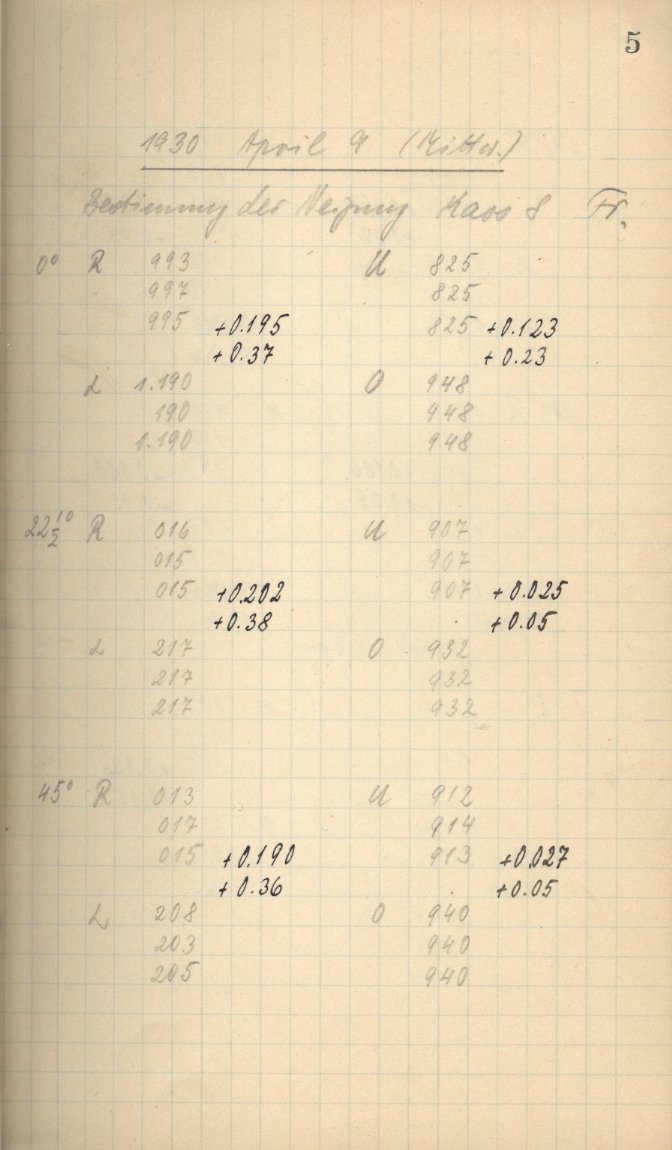 5
1930 April 9 (Mittw.)
Bestimmung der Neigung Kass 8 Fr.
0° R 993 U 825
997 825
995 +0.195 825 +0.123
+0.37 +0.23
L 1.190 O 948
190 948
1.190 948
22 1/2° R 016 U 907
015 907
015 +0.202 907 +0.025
+0.38 +0.05
L 217 O 932
217 932
217 932
45° R 013 U 912
017 914
015 +0.190 913 +0.027
+0.36 +0.05
L 208 O 940
203 940
205 940